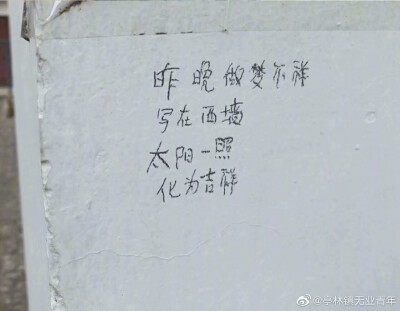 昨晚做梦不祥
写在西墙
太阳一照
化为吉祥
@亭林镇无业青年